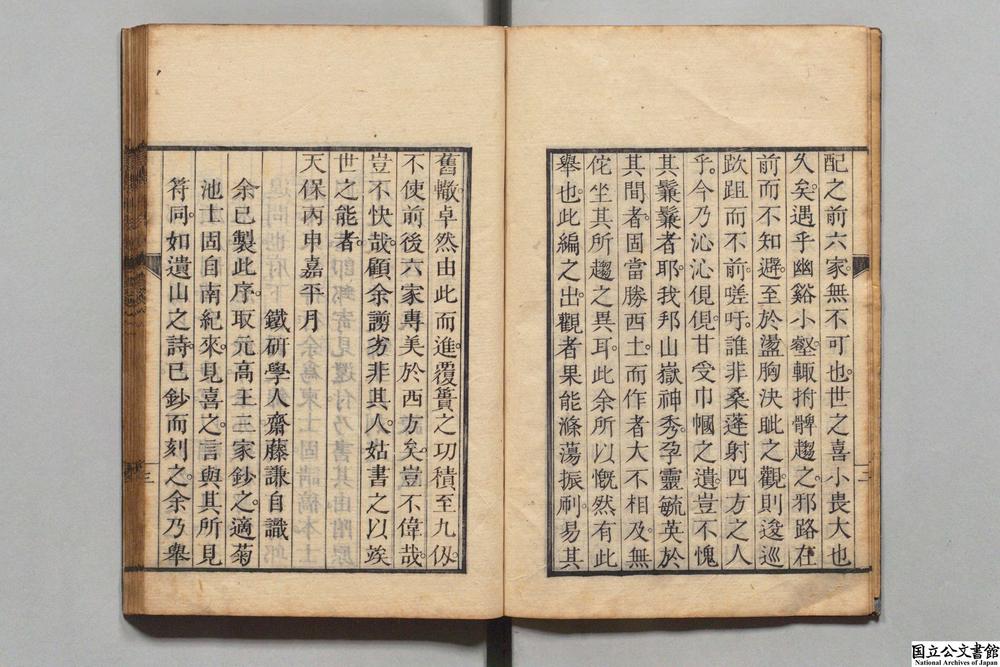 配之前六家。無不可也。世之喜小畏大也
久矣。遇乎幽谿小壑。輒拊髀趨之。邪路在
前而不知避。至於盪胸決眦之觀。則逡巡
趑趄而不前。嗟吁。誰非桑蓬射四方之人
乎。今乃沁沁俔俔。甘受巾幗之遺。豈不愧
其鬚鬣者耶。我邦山嶽神秀。孕靈毓英於
其間者。固當勝西土。而作者大不相及。無
佗。坐其所趨之異耳。此余所以慨然有此
舉也。此編之出。觀者果能滌蕩振刷。易其
舊轍。卓然由此而進。覆簣之功。積至九仭。
不使前後六家專美於西方矣。豈不偉哉。
豈不快哉。顧余謭劣非其人。姑書之以竢
世之能者。
天保丙申嘉平月
鐵研學人齋藤謙自識
余已製此序。取元高王三家鈔之。適菊
池士固自南紀來。見喜之。言與其所見
符同。如遺山之詩。已鈔而刻之。余乃舉
二
三
国立公文書館
National Archives of Japan